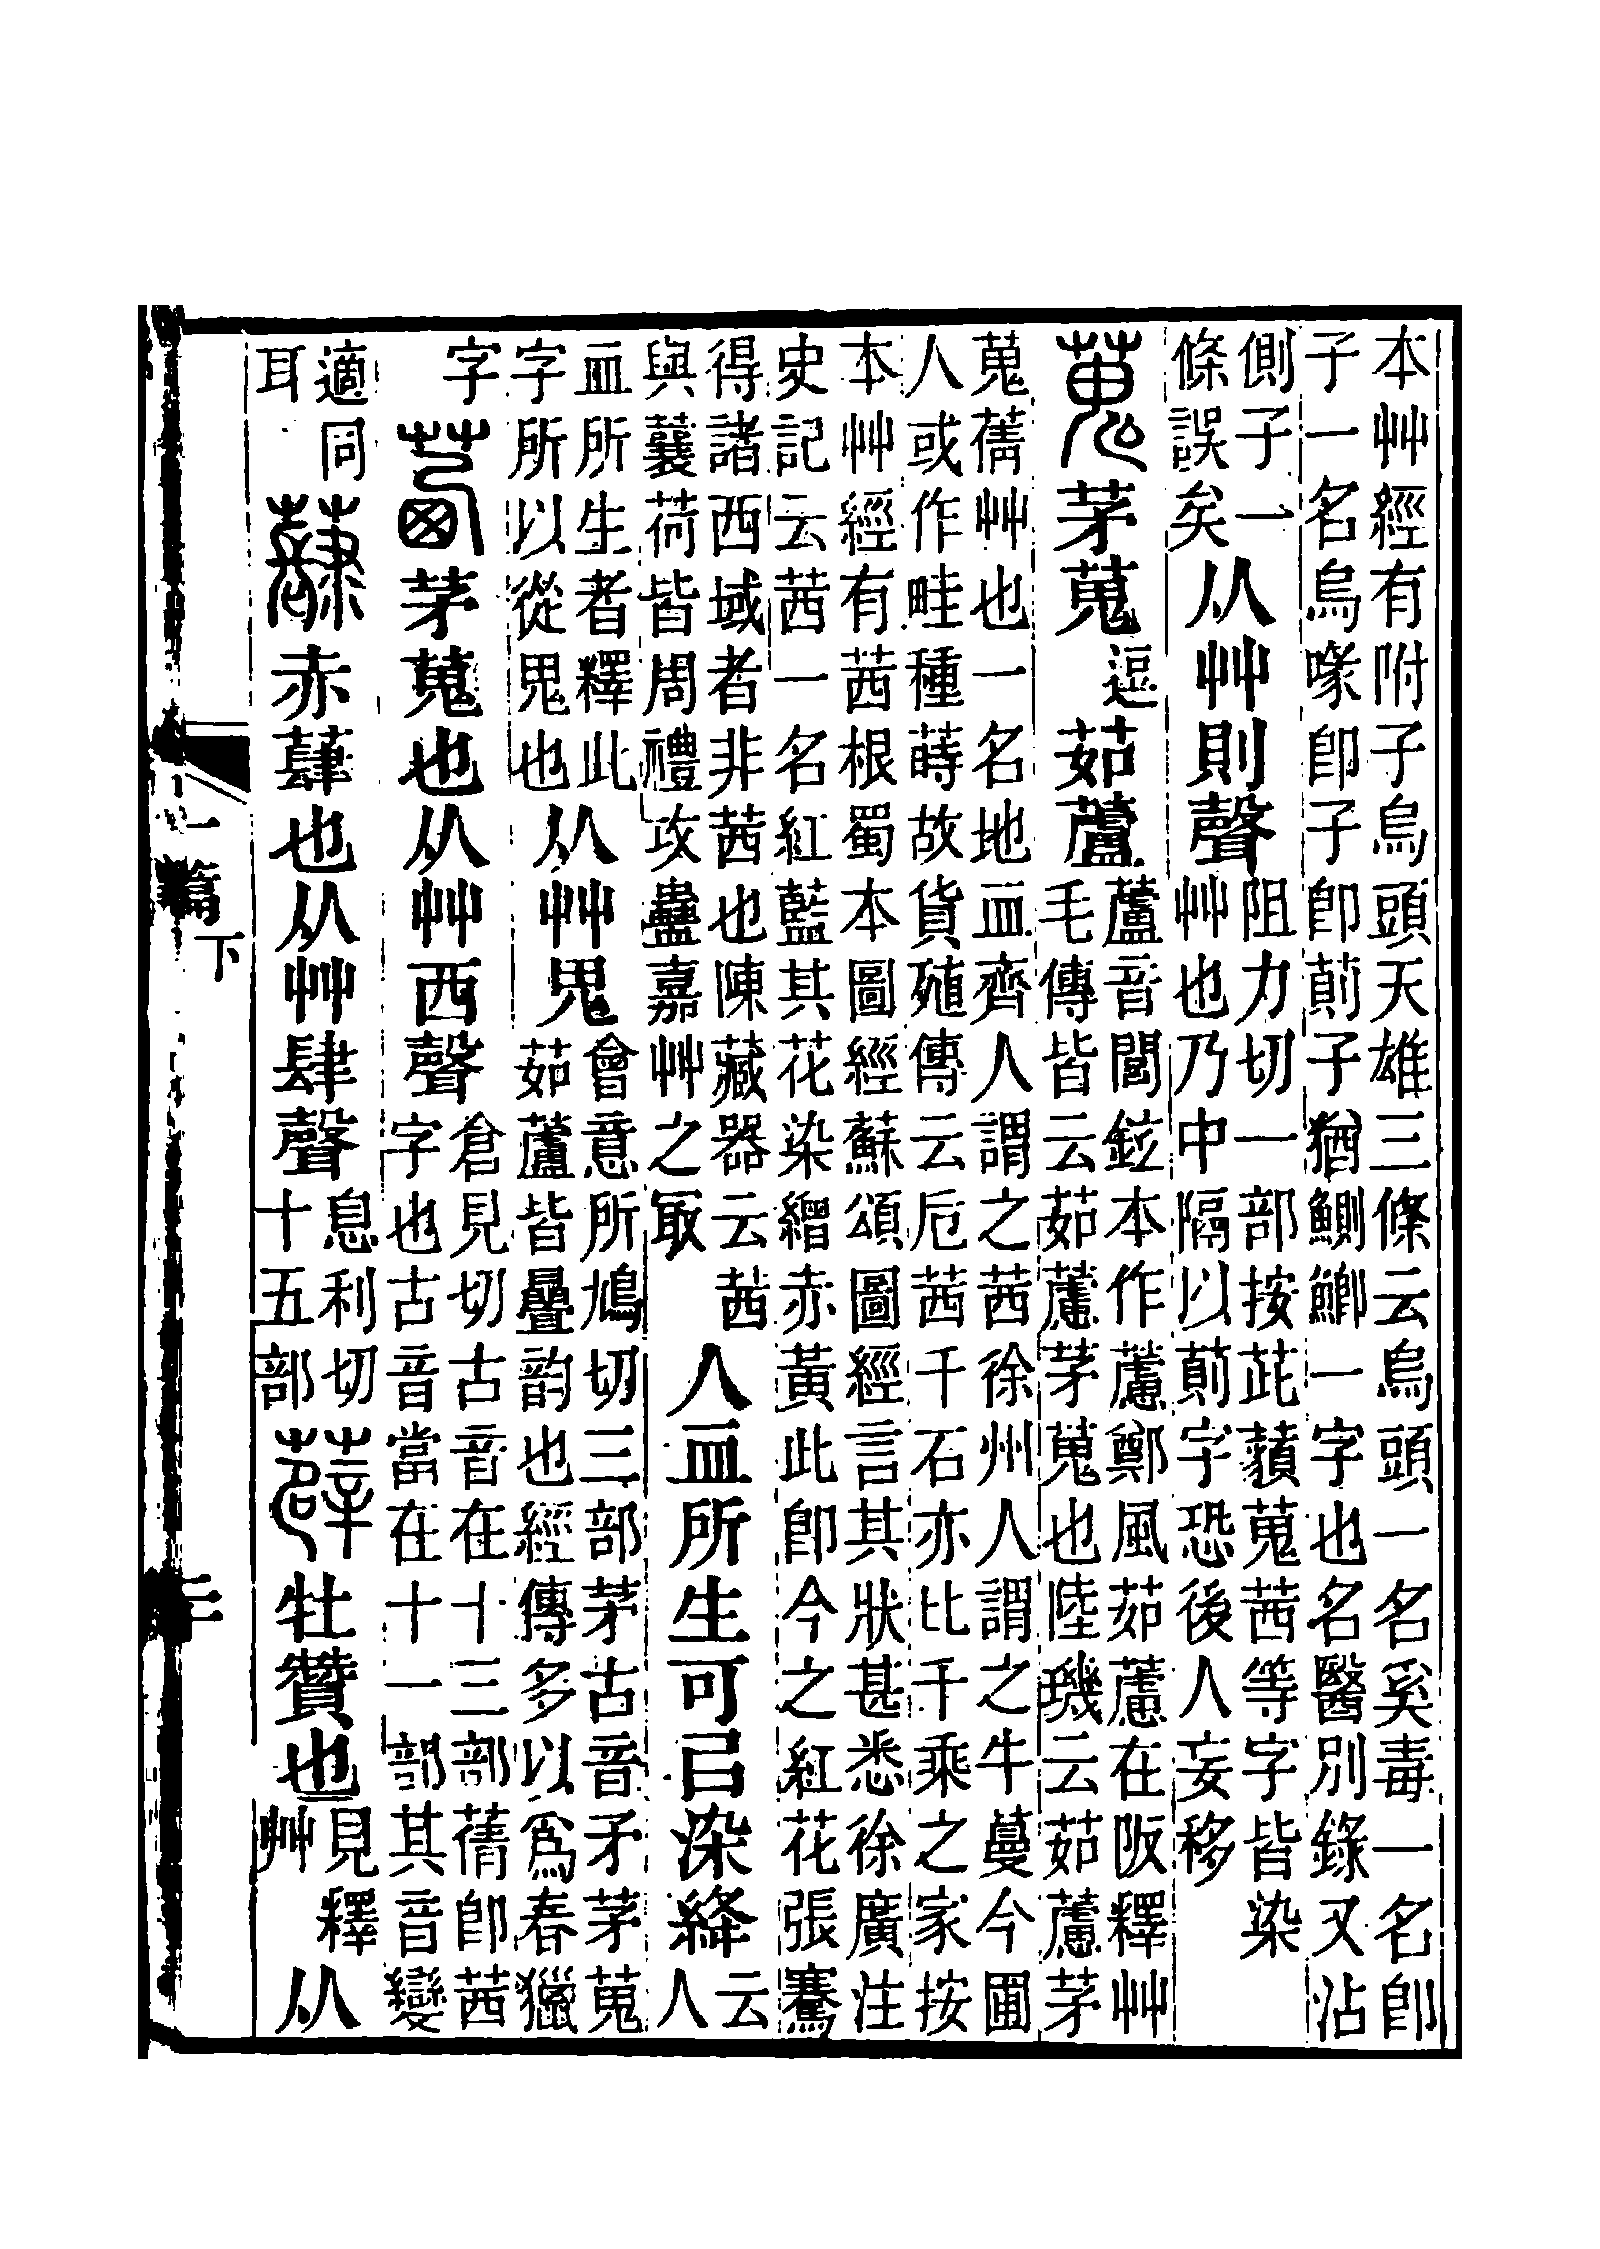 本艸經有附子烏頭天雄三條云烏頭一名奚毒一名卽
子一名烏喙卽子卽萴子猶鰂鯽一字也名醫別錄又沾
側子一
條誤矣
从艸則聲
阻力切一部按茈蘱蒐茜等字皆染
艸也乃中隔以萴字恐後人妄移
蒐茅蒐
逗
茹蘆
蘆音閭鉉本作藘鄭風茹藘在阪釋艸
毛傳皆云茹藘茅蒐也陸璣云茹藘茅
蒐蒨艸也一名地血齊人謂之茜徐州人謂之牛蔓今圃
人或作畦種蒔故貨殖傳云卮茜千石亦比千乘之家按
本艸經有茜根蜀本圖經蘇頌圖經言其狀甚悉徐廣注
史記云茜一名紅藍其花染繒赤黃此卽今之紅花張騫
得諸西域者非茜也陳藏器云茜
與蘘荷皆周禮攻蠱嘉艸之冣
人血所生可㠯染絳
云
人
血所生者釋此
字所以從鬼也
从艸鬼
會意所鳩切三部茅古音矛茅蒐
茹蘆皆疊韵也經傳多以爲春獵
字
茜茅蒐也从艸西聲
倉見切古音在十三部蒨卽茜
字也古音當在十一部其音變
適同
耳
蕼赤蕼也从艸肆聲
息利切
十五部
薜牡贊也
見釋
艸
从
一篇下